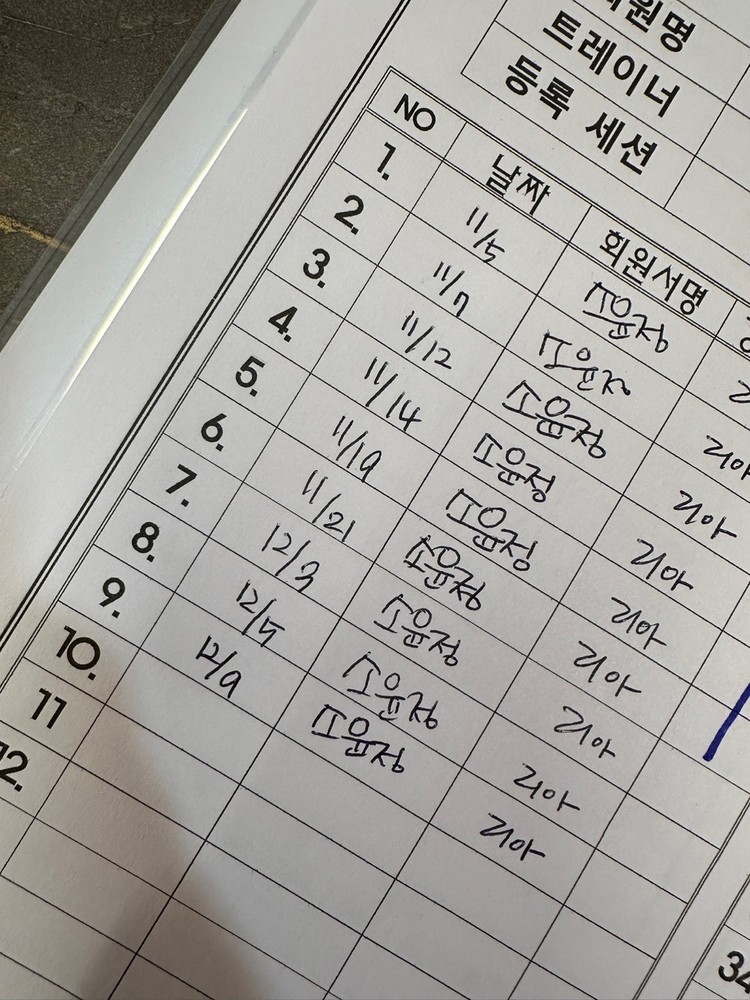 회원명
트레이너
등록 세션
NO 날짜 회원서명
1. 11/5 소윤정
2. 11/7 소윤정 리아
3. 11/12 소윤정 리아
4. 11/14 소윤정 리아
5. 11/19 소윤정 리아
6. 11/21 소윤정 리아
7. 12/3 소윤정 리아
8. 12/5 소윤정 리아
9. 12/9 소윤정 리아
10.
11
12.
34